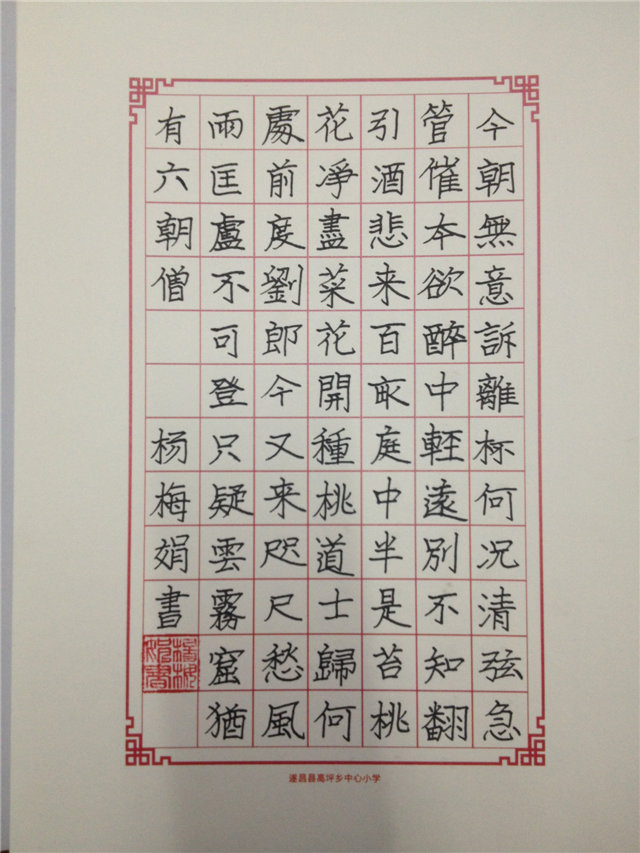 今朝無意訴離杯何况清弦急
管催本欲醉中輕遠別不知翻
引酒悲来百畝庭中半是苔桃
花凈盡菜花開種桃道士歸何
處前度劉郎今又来咫尺愁風
雨匡盧不可登只疑雲霧窟猶
有六朝僧 杨梅娟書
遂昌县高坪乡中心小学